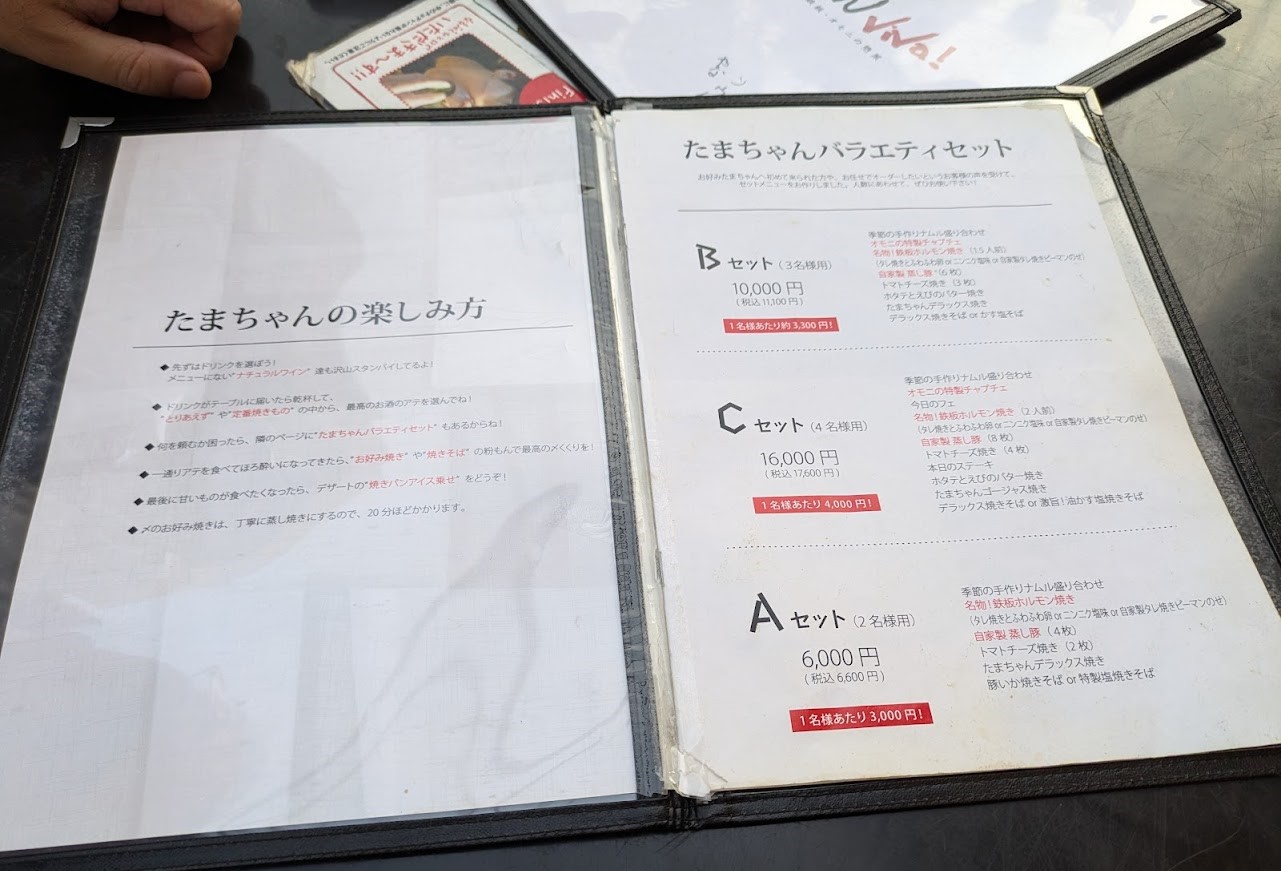 いただき好へす!!
Viva!
たまちゃんの楽しみ方
◆先ずはドリンクを選ぼう!
メニューにない"ナチュラルワイン" 達も沢山スタンバイしてるよ!
◆ドリンクがテーブルに届いたら乾杯して、
"とりあえず" や"定番焼きもの" の中から、最高のお酒のアテを選んでね!
◆何を頼むか困ったら、隣のページに"たまちゃんバラエティセット" もあるからね!
◆一通りアテを食べてほろ酔いになってきたら、"お好み焼き" や"焼きそば" の粉もんで最高の〆くくりを!
◆最後に甘いものが食べたくなったら、デザートの"焼きパンアイス乗せ" をどうぞ!
◆〆のお好み焼きは、丁寧に蒸し焼きにするので、20分ほどかかります。
たまちゃんバラエティセット
お好みたまちゃんへ初めて来られた方や、お任せでオーダーしたいというお客様の声を受けて、
セットメニューをお作りしました。人数にあわせて、ぜひお使い下さい!
B セット(3名様用)
10,000円
(税込11,100円)
1名様あたり約3,300円!
季節の手作りナムル盛り合わせ
オモニの特製チャプチェ
名物!鉄板ホルモン焼き(1.5人前)
(タレ焼きとふわふわ卵 or ニンニク塩味 or 自家製タレ焼きピーマンのせ)
自家製 蒸し豚(6枚)
トマトチーズ焼き(3枚)
ホタテとえびのバター焼き
たまちゃんデラックス焼き
デラックス焼きそば or かす塩そば
C セット(4名様用)
16,000円
(税込17,600円)
1名様あたり4,000円!
季節の手作りナムル盛り合わせ
オモニの特製チャプチェ
今日のフェ
名物!鉄板ホルモン焼き(2人前)
(タレ焼きとふわふわ卵 or ニンニク塩味 or 自家製タレ焼きピーマンのせ)
自家製 蒸し豚(8枚)
トマトチーズ焼き(4枚)
本日のステーキ
ホタテとえびのバター焼き
たまちゃんゴージャス焼き
デラックス焼きそば or 激旨!油かす塩焼きそば
A セット(2名様用)
6,000円
(税込6,600円)
1名様あたり3,000円!
季節の手作りナムル盛り合わせ
名物!鉄板ホルモン焼き
(タレ焼きとふわふわ卵 or ニンニク塩味 or 自家製タレ焼きピーマンのせ)
自家製 蒸し豚(4枚)
トマトチーズ焼き(2枚)
たまちゃんデラックス焼き
豚いか焼きそば or 特製塩焼きそば